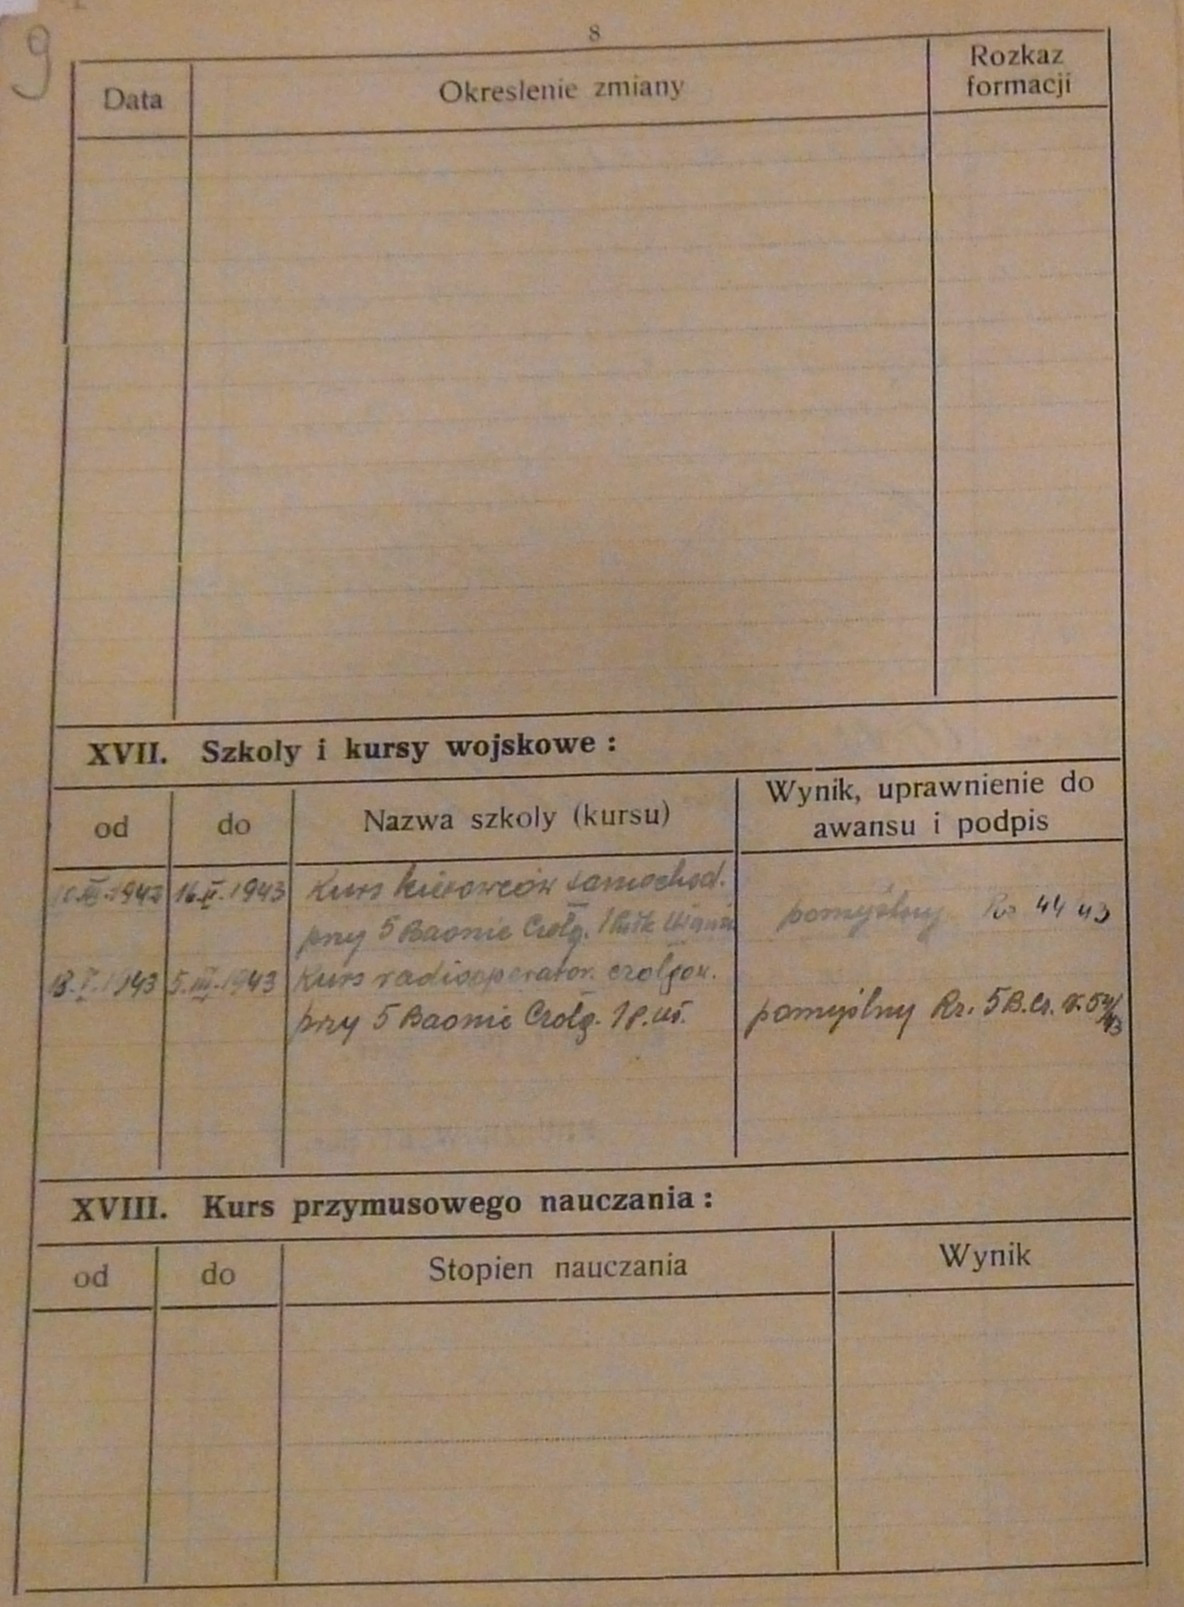 9
8
Data Okreslenie zmiany Rozkaz formacji
XVII. Szkoly i kursy wojskowe :
od do Nazwa szkoly (kursu) Wynik, uprawnienie do awansu i podpis
1942 16.II.1943 Kurs kierowców samochod.
przy 5 Baonie Czołg. 1 pomyślny Rz 44 43
18.I.1943 5.III.1943 Kurs radiooperator. czołgow.
przy 5 Baonie Czołg. 1 p. uł. pomyślny Rz. 5 B.Cz.
XVIII. Kurs przymusowego nauczania :
od do Stopien nauczania Wynik